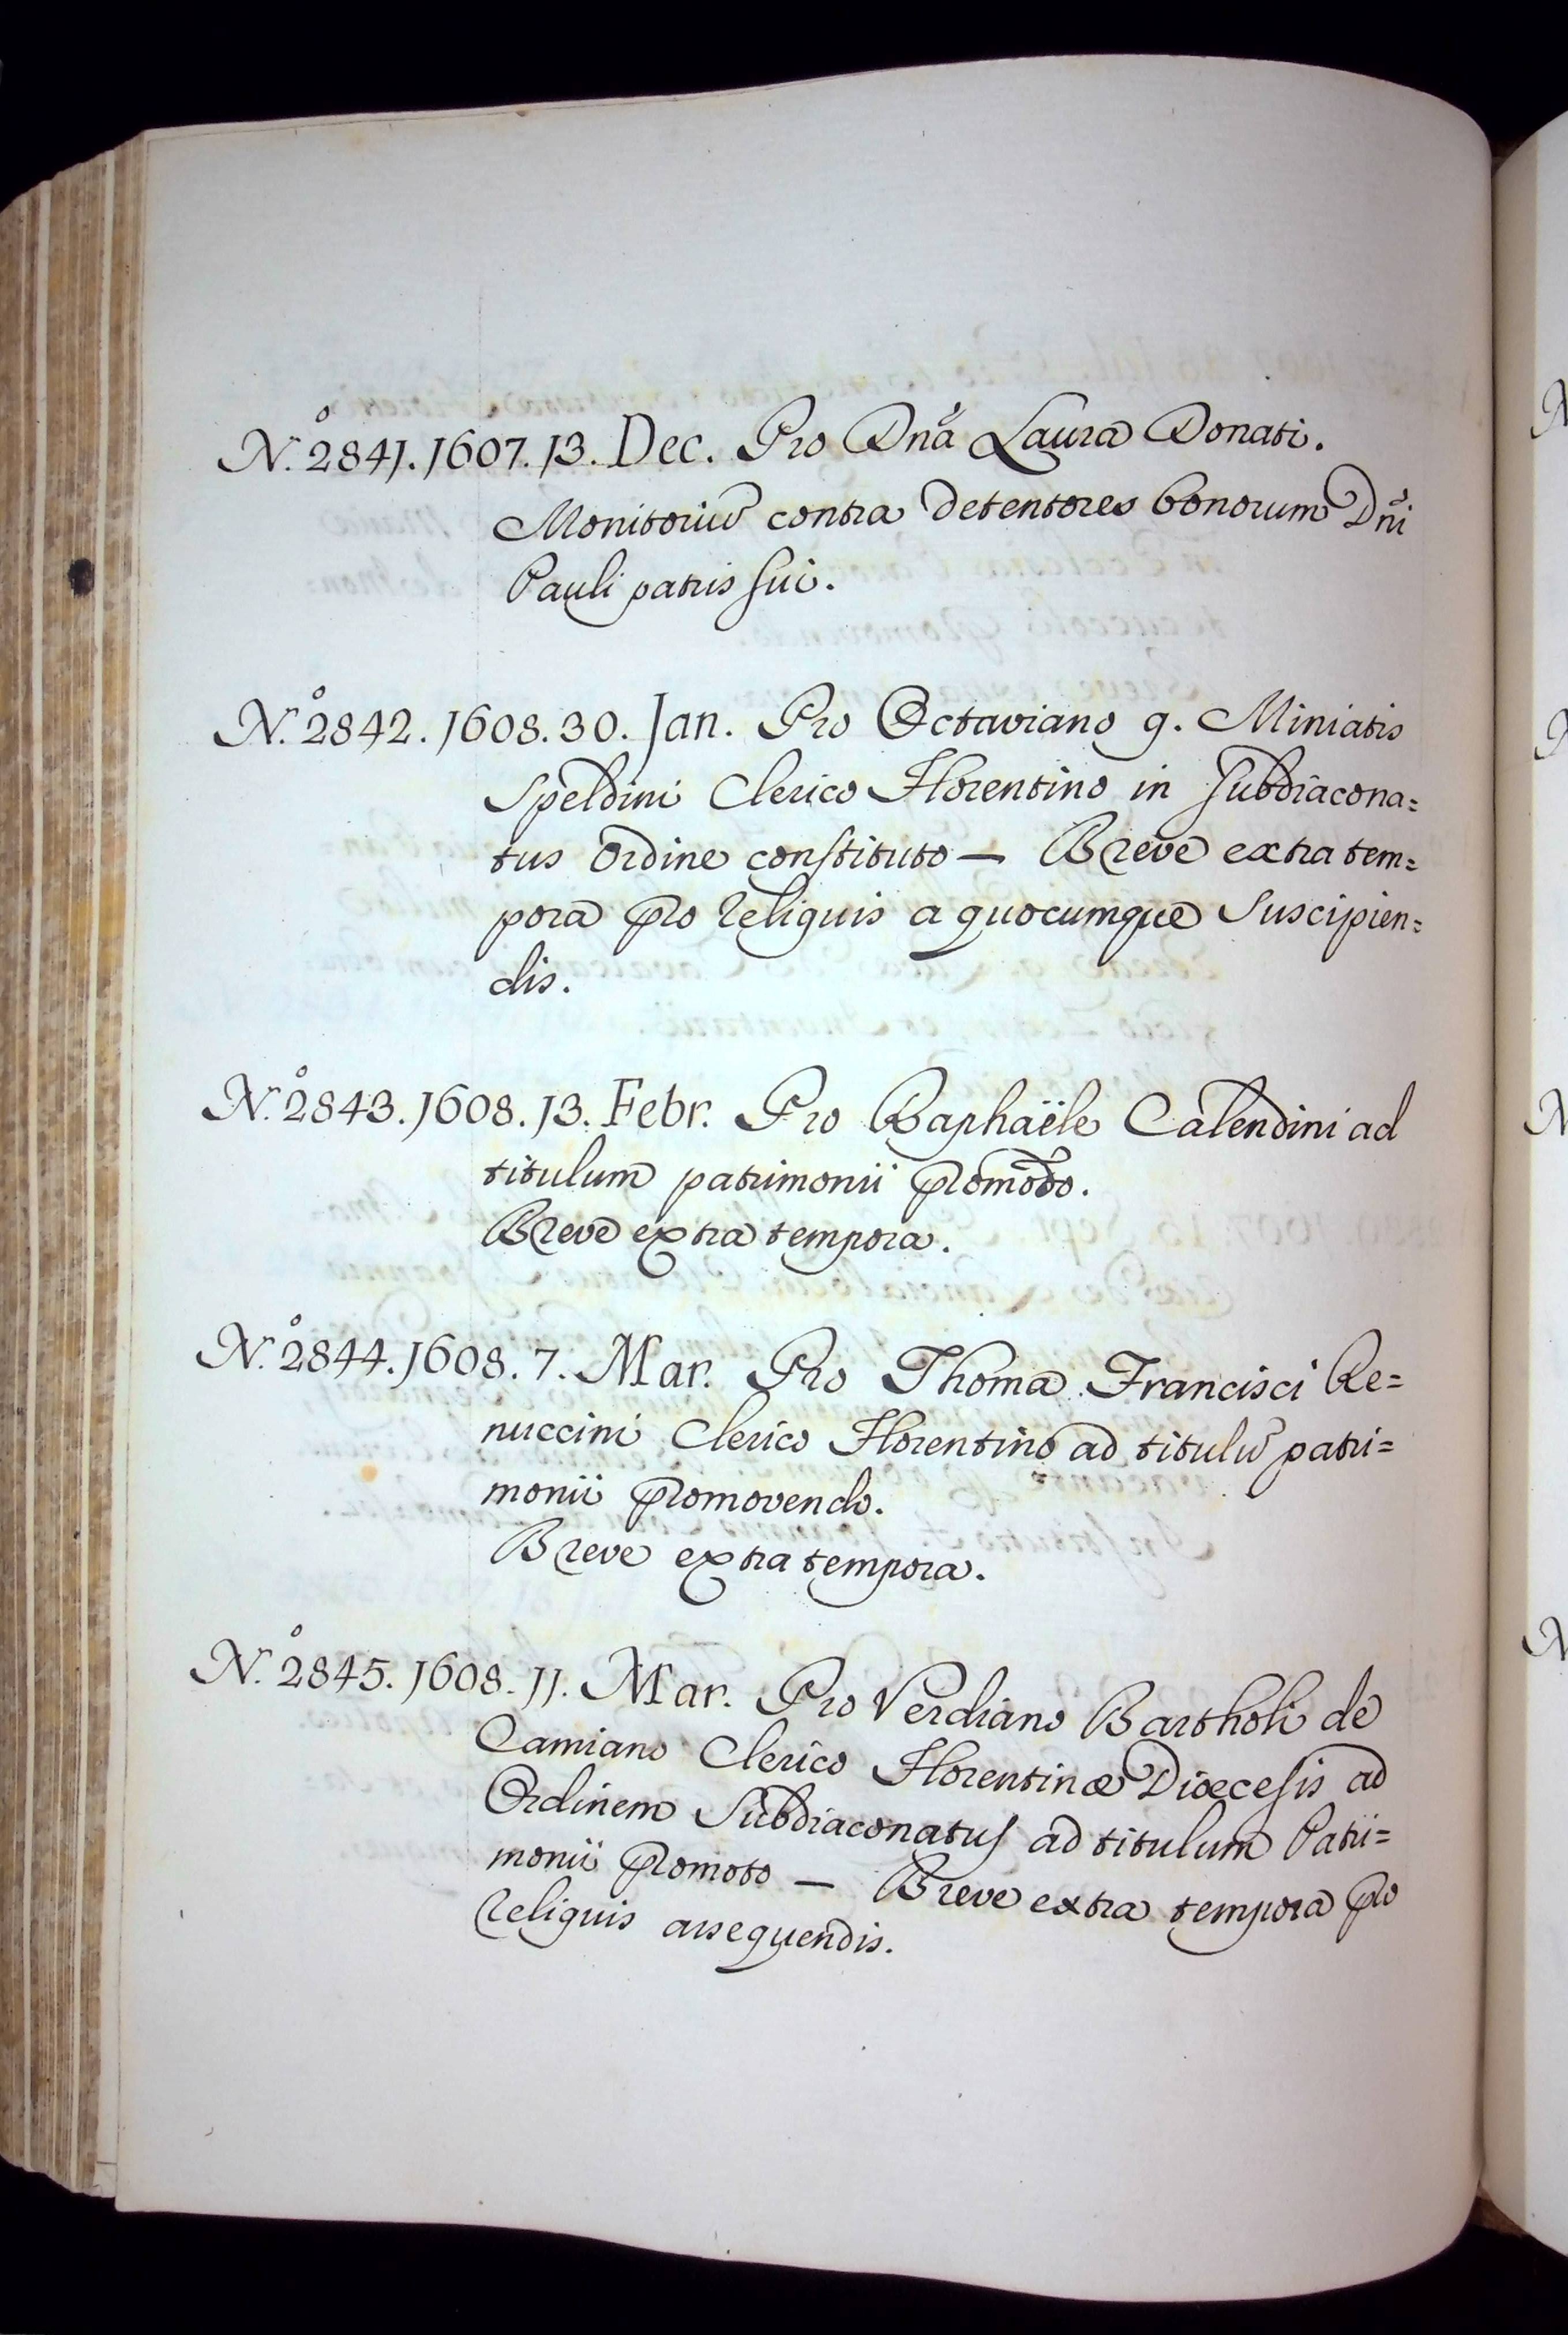 N.º 2841. 1607. 13. Dec. Pro Dnã Laura Donati.
Monitoriũ contra detentores bonorum Dñi
Pauli patris sui.
N.º 2842. 1608. 30. Jan. Pro Octaviano q. Miniatis
Speldini Clerico Florentino in Subdiacona=
tus Ordine constituto — Breve extra tem=
pora pro reliquis a quocumque suscipien=
dis.
N.º 2843. 1608. 13. Febr. Pro Raphaële Calendini ad
titulum patrimonii promõdo.
Breve extra tempora.
N.º 2844. 1608. 7. Mar. Pro Thoma Francisci Re=
nuccini Clerico Florentino ad titulũ patri=
monii promovendo.
Breve extra tempora.
N.º 2845. 1608. 11. Mar. Pro Verdiano Bartholi de
Camiano Clerico Florentinæ Diœcesis ad
Ordinem Subdiaconatus ad titulum Patri=
monii promoto — Breve extra tempora pro
reliquis assequendis.